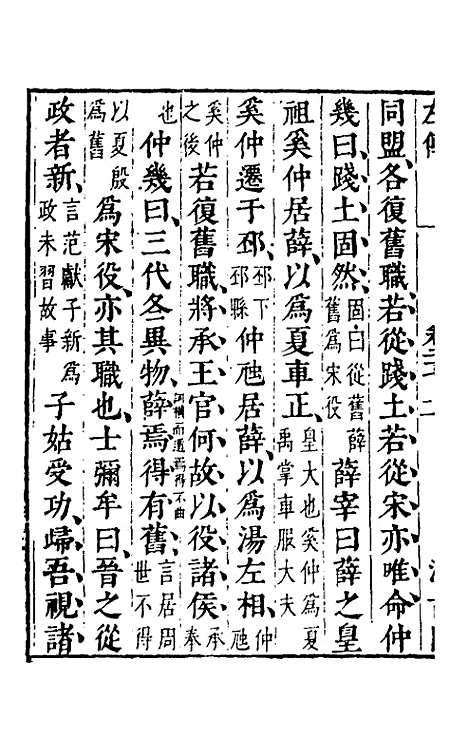 左傳
同盟、各復舊職、若從踐土若從宋亦唯命仲
幾曰、踐土固然、固曰從舊薛舊爲宋役薛宰曰薛之皇
祖奚仲居薛、以爲夏車正、皇大也奚仲爲夏禹掌車服大夫
奚仲遷于邳、邳下邳縣仲虺居薛、以爲湯左相、仲虺
奚仲之後若復舊職、將承王官、何故以役諸侯、承奉
也仲幾曰、三代各異物、薛焉得有舊、言居周世不得
詞横而遁焉得不曲
以夏殷爲舊爲宋役、亦其職也、士彌牟曰、晉之從
政者新、言范獻子新爲政未習故事子姑受功、歸、吾視諸